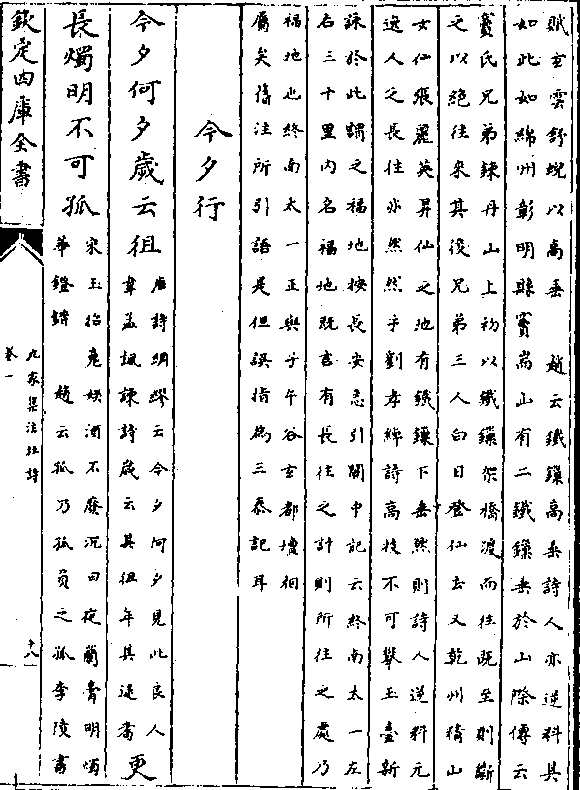 賦玄雲舒蜺以高垂　趙云鐵鎖高垂詩人亦逆料其
如此如綿州彰明縣竇嵓山有二鐵鎖垂於山際傳云
竇氏兄弟錬丹山上初以鐵鎖架橋渡而往既至則斷
之以絶往來其後兄弟三人白日登仙去又乾州猗山
女仙張麗英昇仙之地有鐵鎖下垂然則詩人逆料元
逸人之長住亦然然乎劉孝綽詩髙枝不可攀玉臺新
詠於此謂之福地按長安志引關中記云終南太一左
右三十里内名福地既言有長往之計則所往之處乃
福地也終南太一正與子午谷玄都壇相
屬矣舊注所引語是但誤指為三秦記耳
今夕行
今夕何夕歲云徂
唐詩綢繆云今夕何夕見此良人
韋孟諷諫詩歲云其徂年其逮耇
更
長燭明不可孤
宋玉招魂娛酒不廢沉日夜蘭膏明燭
華鐙錯　趙云孤乃孤負之孤李陵書
欽定四庫全書
九家集注杜詩
卷一
十八